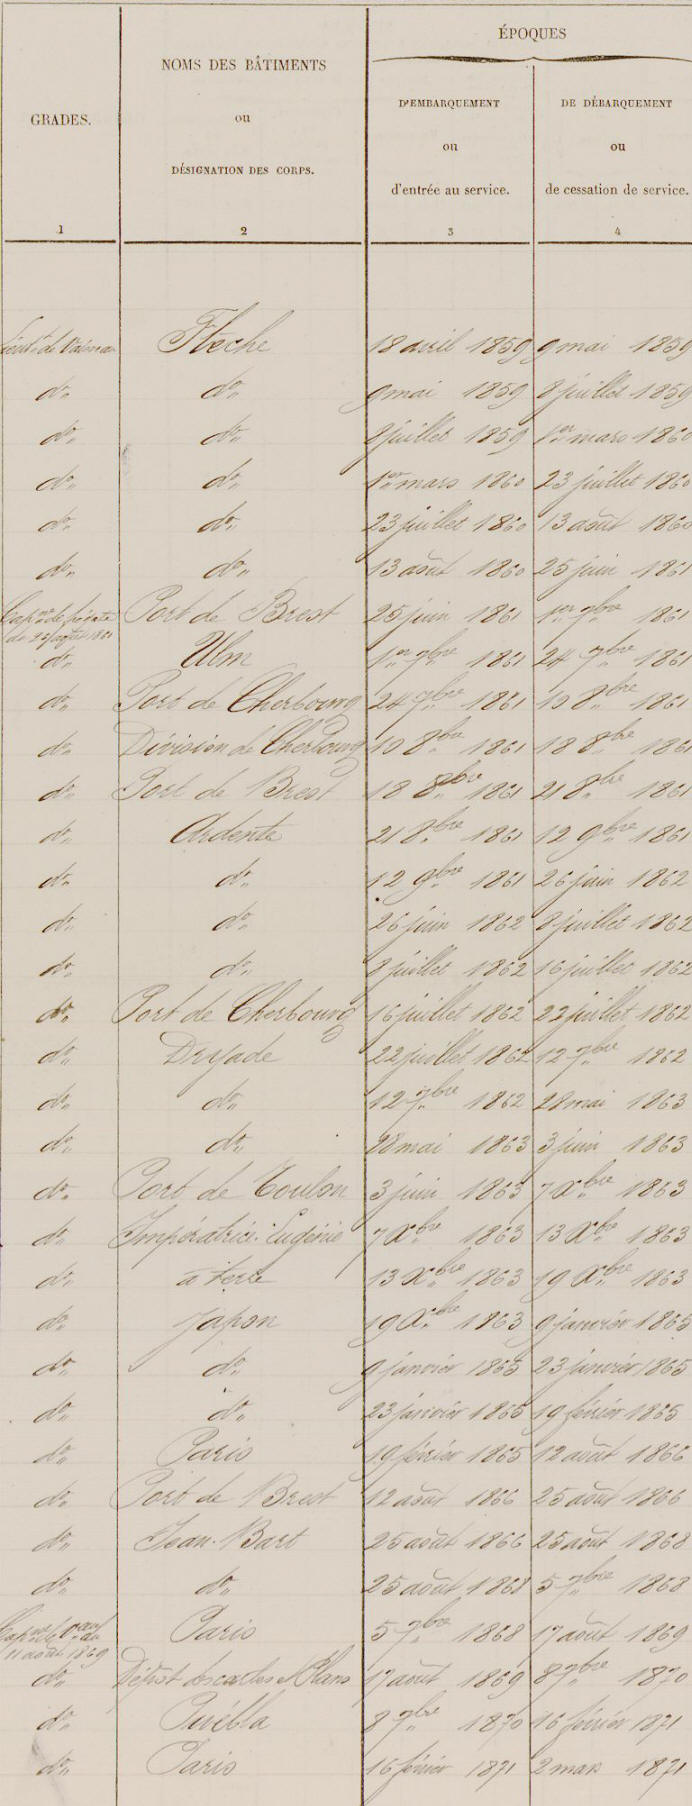 GRADES.
NOMS DES BÂTIMENTS
ou
DÉSIGNATION DES CORPS.
ÉPOQUES
D'EMBARQUEMENT
ou
d'entrée au service.
DE DÉBARQUEMENT
ou
de cessation de service.
1 2 3 4
Lieut. de Vaisseau Flèche 18 avril 1859 9 mai 1859
do do 9 mai 1859 8 juillet 1859
do do 8 juillet 1859 1er mars 1860
do do 1er mars 1860 23 juillet 1860
do do 23 juillet 1860 13 août 1860
do do 13 août 1860 25 juin 1861
Capne de frégate Port de Brest 25 juin 1861 1er 7bre 1861
do Ulm 1er 7bre 1861 24 7bre 1861
do Port de Cherbourg 24 7bre 1861 10 8bre 1861
do Division de Cherbourg 10 8bre 1861 18 8bre 1861
do Port de Brest 18 8bre 1861 21 8bre 1861
do Ardente 21 8bre 1861 12 9bre 1861
do do 12 9bre 1861 26 juin 1862
do do 26 juin 1862 8 juillet 1862
do do 8 juillet 1862 16 juillet 1862
do Port de Cherbourg 16 juillet 1862 22 juillet 1862
do Dryade 22 juillet 1862 12 7bre 1862
do do 12 7bre 1862 28 mai 1863
do do 28 mai 1863 3 juin 1863
do Port de Toulon 3 juin 1863 7 Xbre 1863
do Impératrice Eugénie 7 Xbre 1863 13 Xbre 1863
do à terre 13 Xbre 1863 19 Xbre 1863
do Japon 19 Xbre 1863 9 janvier 1865
do do 9 janvier 1865 23 janvier 1865
do do 23 janvier 1865 19 février 1865
do Paris 19 février 1865 12 août 1866
do Port de Brest 12 août 1866 25 août 1866
do Jean-Bart 25 août 1866 25 août 1868
do do 25 août 1868 5 7bre 1868
Capne de Vau du Paris 5 7bre 1868 17 août 1869
11 août 1869
do Dépôt des cartes et Plans 17 août 1869 8 7bre 1870
do Puébla 8 7bre 1870 16 février 1871
do Paris 16 février 1871 2 mars 1871